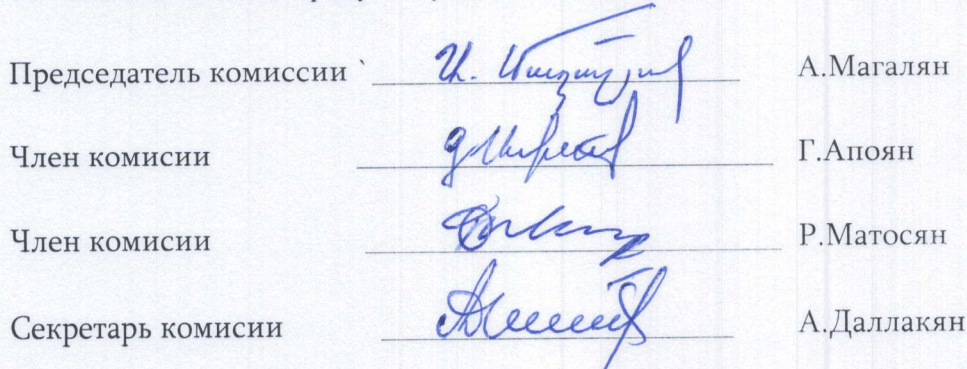 Председатель комиссии А.Магалян
Член комисии Г.Апоян
Член комисии Р.Матосян
Секретарь комисии А.Даллакян